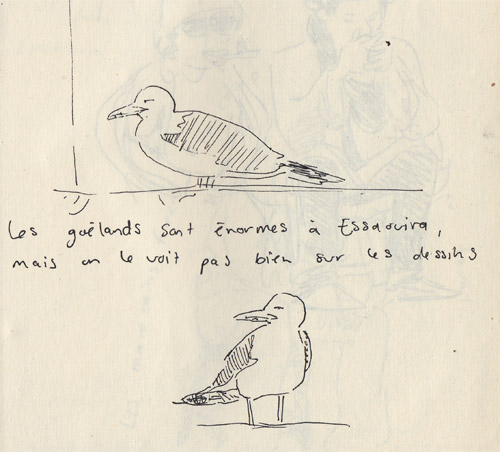 Les goëlands sont énormes à Essaouira,
mais on le voit pas bien sur les dessins